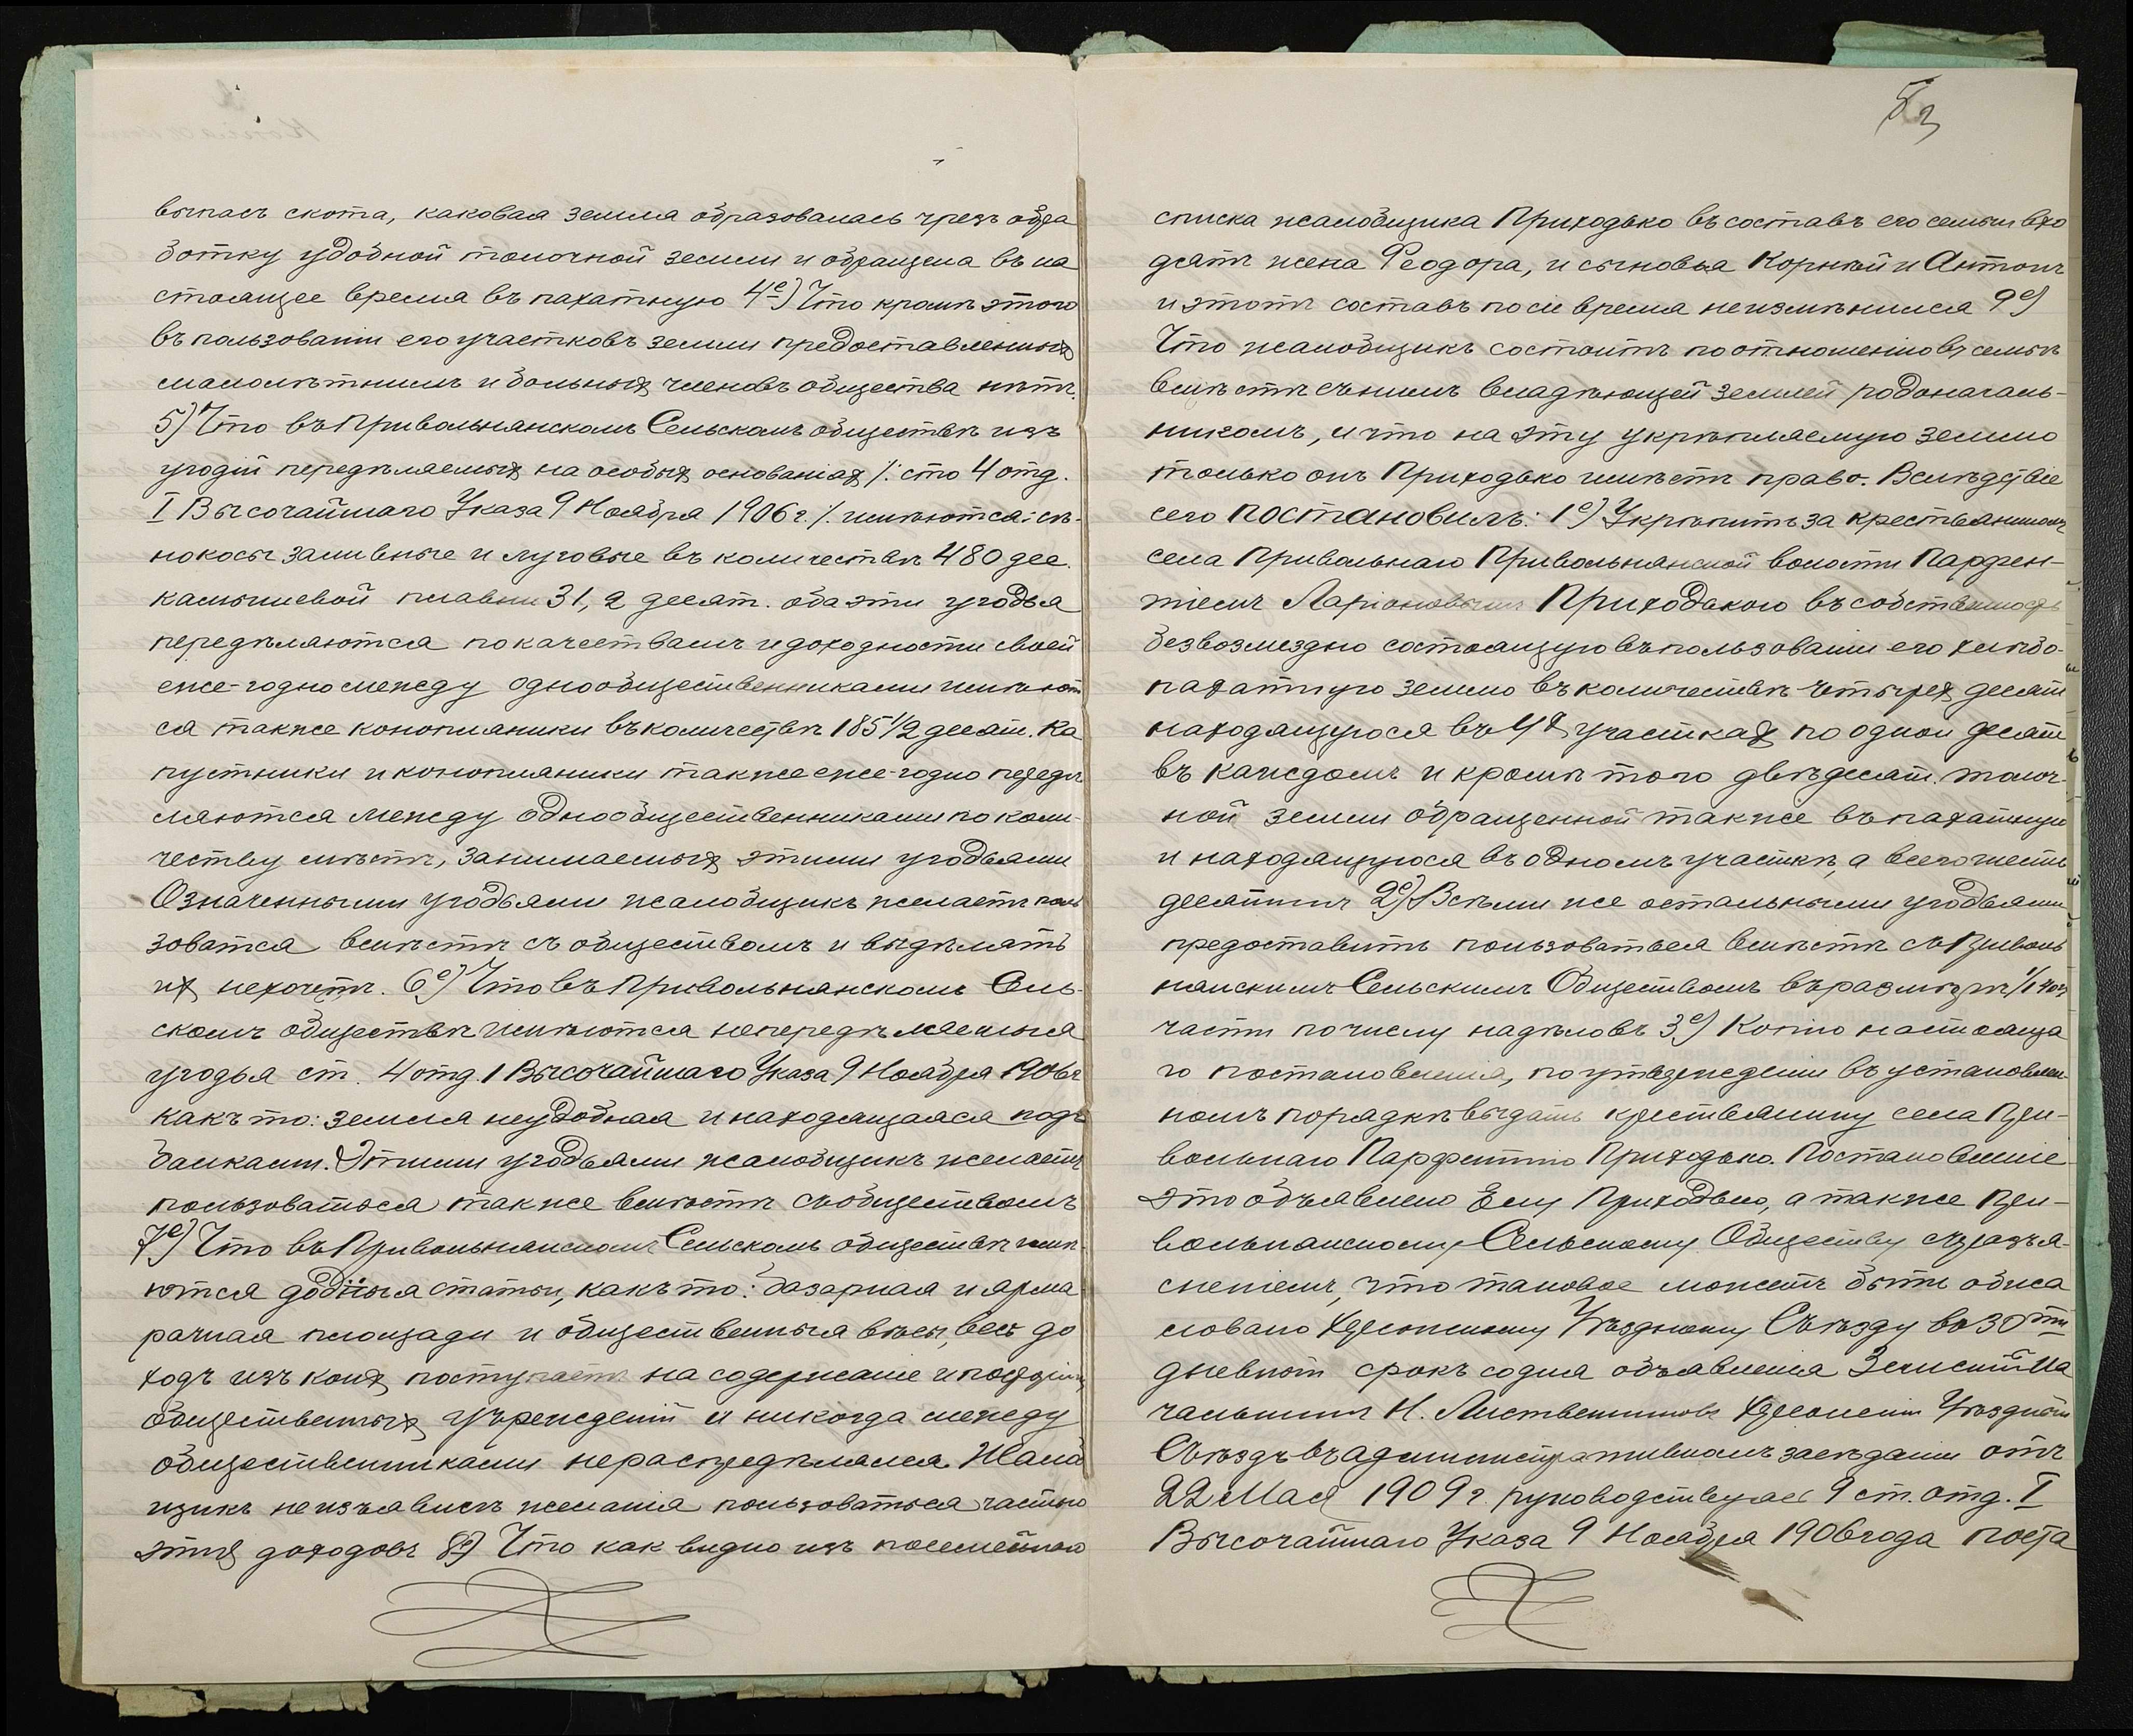 выпасъ скота, каковая земля образовалась чрезъ обра
ботку удобной толочной земли и обращена въ на
стоящее время въ пахатную 4е) Что кромѣ этого
въ пользованіи его участковъ земли предоставленныхъ
малолѣтнимъ и больныхъ членовъ общества нѣтъ.
5) Что въ Привольнянскомъ Сельскомъ обществѣ изъ
угодій передѣляемыхъ на особыхъ основаніяхъ /: ст. 4 отд.
I Высочайшаго Указа 9 Ноября 1906 г. /. имѣются: сѣ-
нокосы заливные и луговые въ количествѣ 480 дес.
камышевой плавни 31,2 десят. оба эти угодья
передѣляются по качествамъ и доходности своей
еже-годно между однообщественниками имѣют
ся также конопляники въ количествѣ 185 1/2 десят. Ка
пустники и конопляники также еже-годно передѣ
ляются между однообщественниками по коли-
честву мѣстъ, занимаемыхъ этими угодьями
Означенными угодьями жалобщикъ желаетъ поль
зоватся вмѣстѣ съ обществомъ и выдѣлять
ихъ нехочетъ. 6е) Что въ Привольнянскомъ Сель-
скомъ обществѣ имѣются непередѣляемыя
угодья ст. 4 отд. 1 Высочайшаго Указа 9 Ноября 1906 г
какъ то: земля неудобная и находящаяся подъ
балками. Этими угодьями жалобщикъ желаетъ
пользоваться также вмѣстѣ съ обществомъ
7е) Что въ Привольнянскомъ Сельскомъ обществѣ имѣ-
ются доходныя статьи, какъ то: базарная и ярма
рачная площади и общественныя вѣсы, весь до
ходъ изъ коихъ поступаетъ на содержаніе и
общественныхъ учрежденій и никогда между
общественниками нераспредѣлялся. Жалоб
щикъ неизъявилъ желанія пользоваться частью
этихъ доходовъ 8е) Что как видно изъ посемейнаго
списка жалобщика Приходько въ составъ его семьи вхо
дятъ жена Феодора, и сыновья Корнѣй и Антонъ
и этотъ составъ по сіе время неизмѣнился 9е)
Что жалобщикъ состоитъ по отношенію въ семьѣ
вмѣстѣ съ нимъ владѣющей землей родоначаль-
никомъ, и что на эту укрѣпляемую землю
только онъ Приходько имѣетъ право. Вслѣдствіе
сего постановилъ: 1е) Укрѣпить за крестьяниномъ
села Привольнаго Привольнянской волости Парфен-
тіемъ Ларіоновымъ Приходькою въ собственность
безвозмездно состоящую въ пользованіи его хлѣбо-
пахатную землю въ количествѣ четырехъ десят
находящуюся въ 4хъ участкахъ по одной десят
въ каждомъ и кромѣ того двѣ десят. толоч-
ной земли обращенной также въ пахатную
и находящуюся въ одномъ участкѣ, а всего шесть
десятинъ 2е) Всѣми же остальными угодьями
предоставить пользоваться вмѣстѣ съ Приволь
нянскимъ Сельскимъ Обществомъ въ размѣрѣ
части по числу надѣловъ 3е) Копію настояща
го постановленія, по утвержденіи въ установлен-
номъ порядкѣ выдать крестьянину села При-
вольнаго Парфентію Приходько. Постановленіе
это объявлено Ему Приходько, а также При-
вольнянскому Сельскому Обществу съ разъя-
сненіемъ, что таковое можетъ быть обжа
ловано Херсонскому Уѣздному Съѣзду въ 30ти
дневный срокъ со дня объявленія Земскій На
чальникъ Н. Листвениковъ Херсонскій Уѣздный
Съѣздъ въ административномъ засѣданіи отъ
22 Мая 1909 г. руководствуясь 9 ст. отд. I
Высочайшаго Указа 9 Ноября 1906 года поста